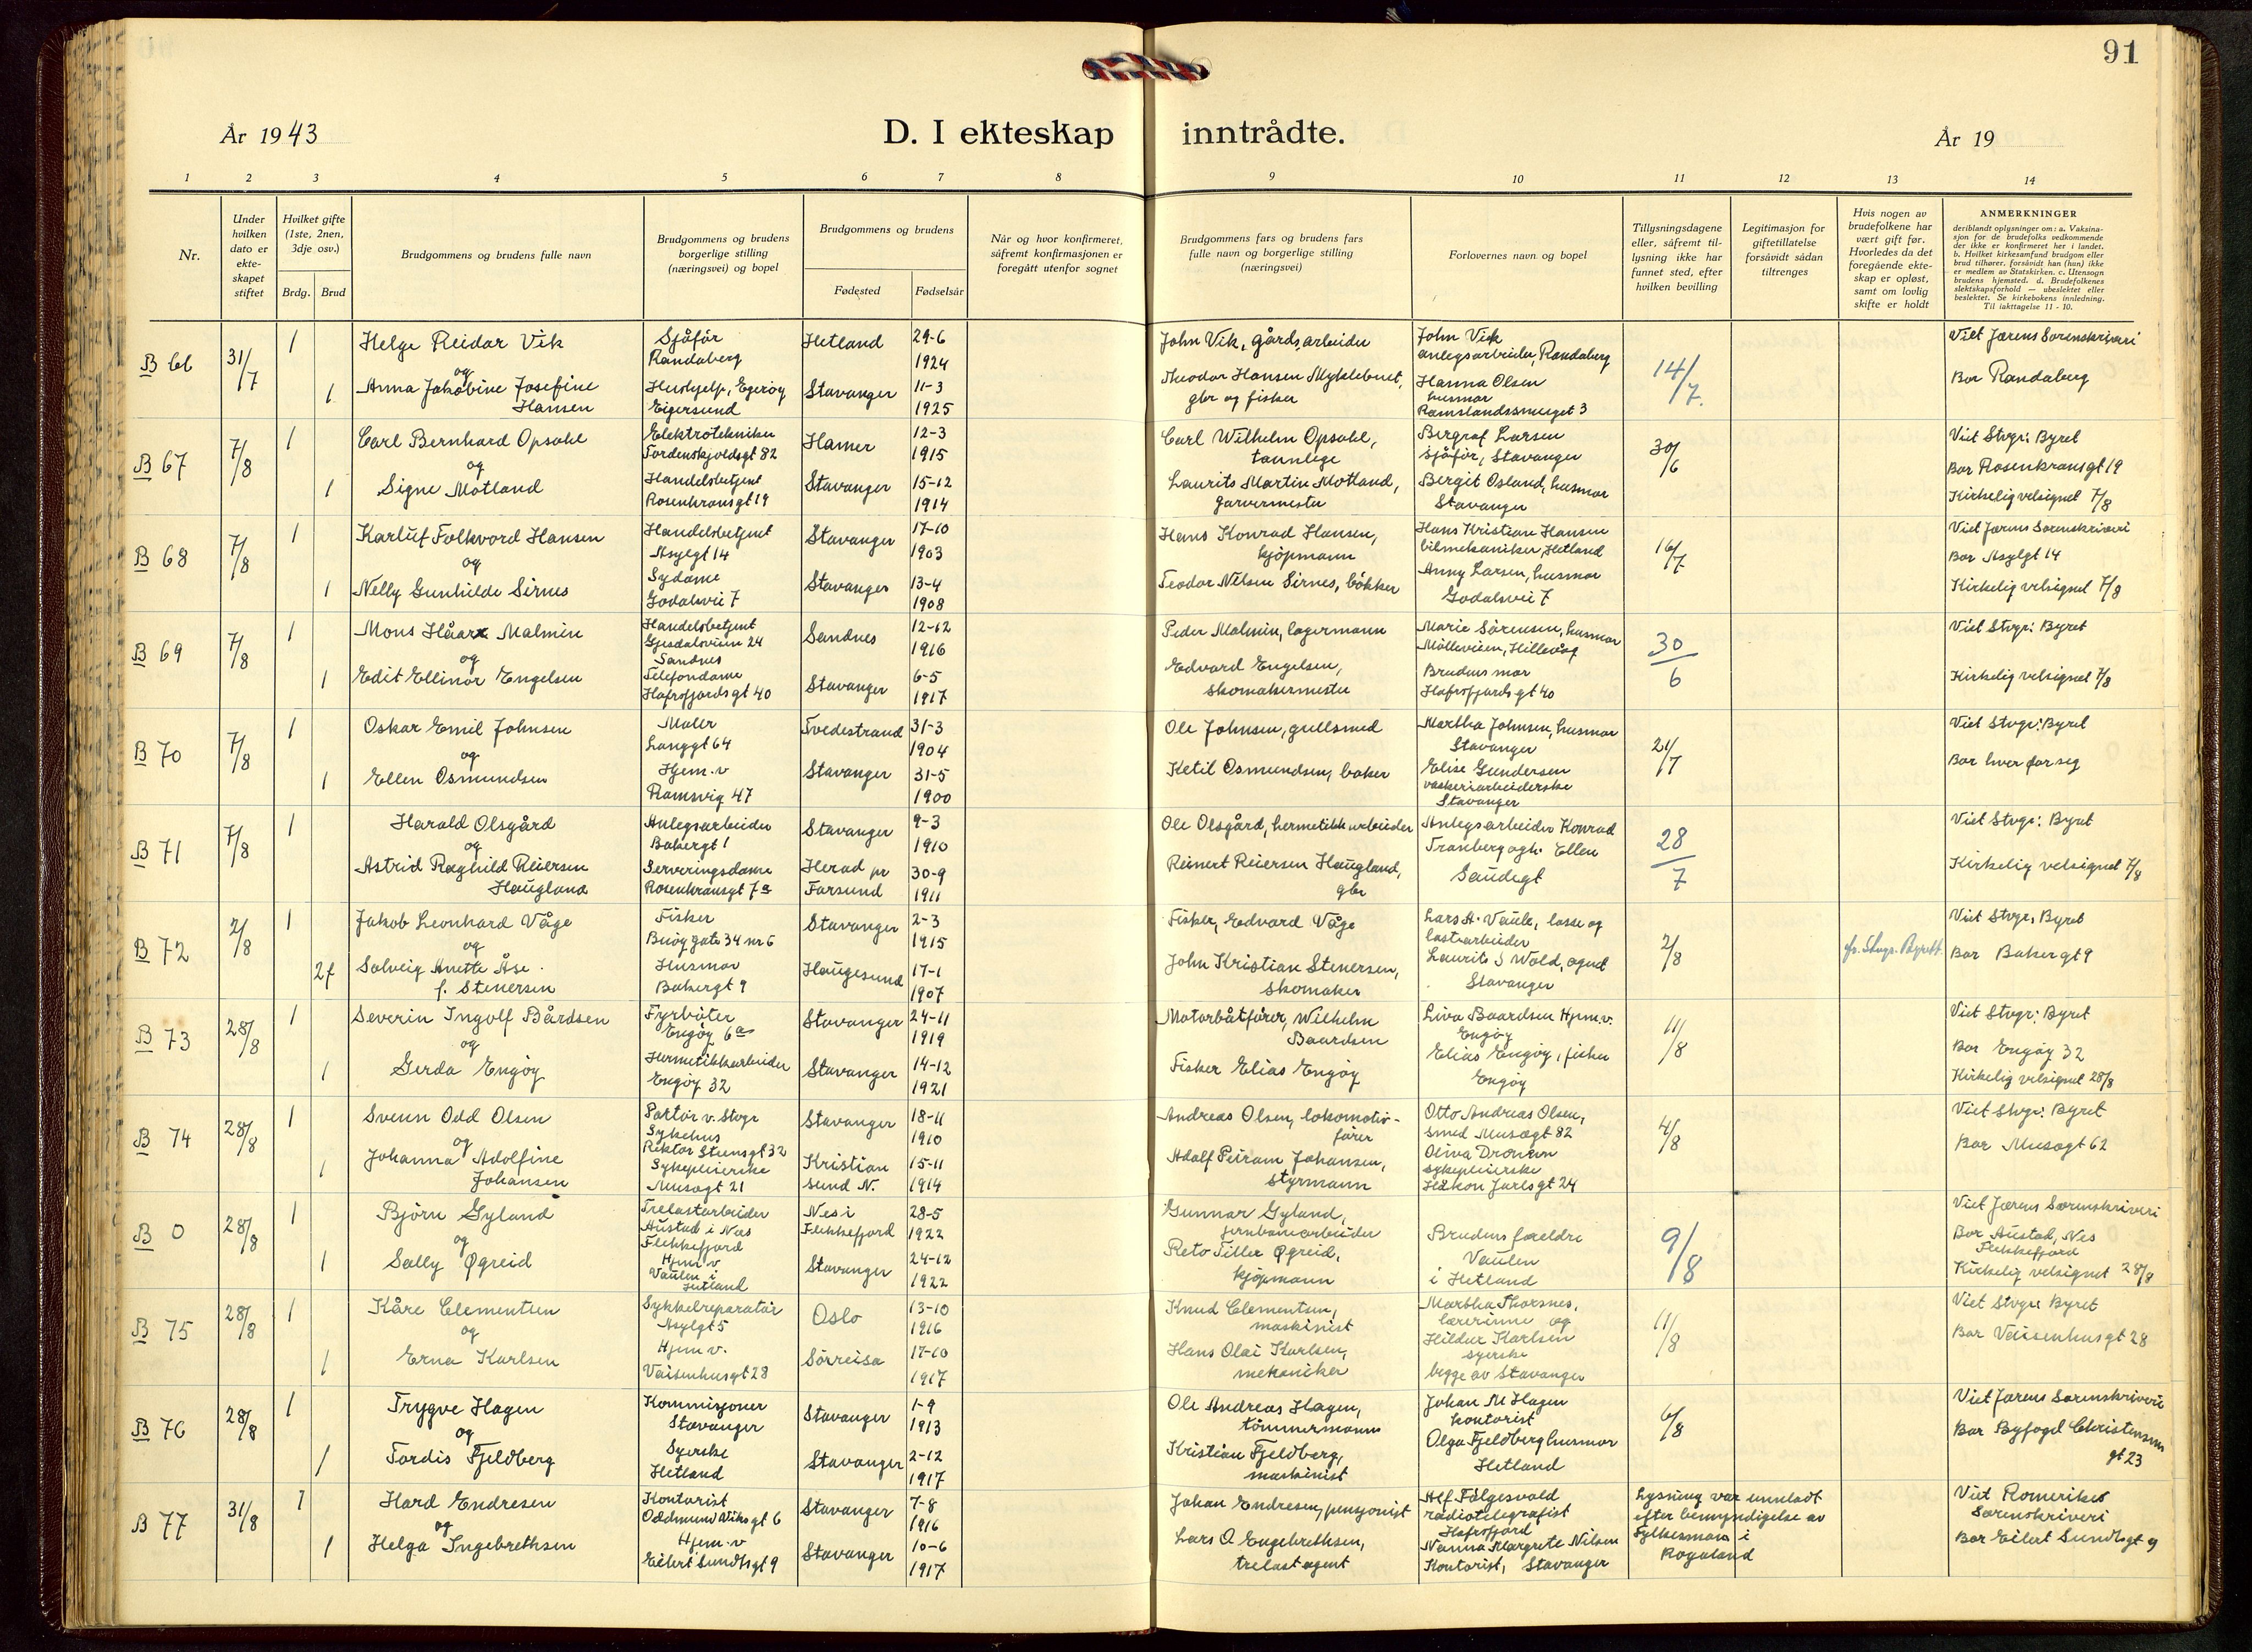 91
År 1943
D. I ekteskap inntrådte.
År 19
1 2 3 4 5 6 7 8 9 10 11 12 13 14
Nr.
Under hvilken dato er ekte-skapet stiftet
Hvilket gifte (1ste, 2nen, 3dje osv.)
Brdg. Brud
Brudgommens og brudens fulle navn
Brudgommens og brudens borgerlige stilling (næringsvei) og bopel
Brudgommens og brudens
Fødested
Fødselsår
Når og hvor konfirmeret, såfremt konfirmasjonen er foregått utenfor sognet
Brudgommens fars og brudens fars fulle navn og borgerlige stilling (næringsvei)
Forlovernes navn og bopel
Tillysningsdagene eller, såfremt til-lysning ikke har funnet sted, efter hvilken bevilling
Legitimasjon for giftetillatelse forsåvidt sådan tiltrenges
Hvis nogen av brudefolkene har vært gift før. Hvorledes da det foregående ekte-skap er opløst, samt om lovlig skifte er holdt
ANMERKNINGER
deriblandt oplysninger om: a. Vaksina-sjon for de brudefolks vedkommende der ikke er konfirmeret her i landet. b. Hvilket kirkesamfund brudgom eller brud tilhører, forsåvidt han (hun) ikke er medlem av Statskirken. c. Utensogn brudens hjemsted. d. Brudefolkenes slektskapsforhold — ubeslektet eller beslektet. Se kirkebokens innledning. Til iakttagelse 11 - 10.
B 66
31/7
1
Helge Reidar Vik
og
1
Anna Jakobine Josefine
Hansen
Sjåfør
Randaberg
Hushjelp, Egerøy
Eigersund
Hetland
Stavanger
29-6
1924
11-3
1925
John Vik, gårdsarbeider
Theodor Hansen Myklebust,
gbr og fisker
John Vik
anlegsarbeider, Randaberg
Hanna Olsen
husmor
Ramslandssmuget 3
14/7.
Viet Jærens Sorenskriveri
Bor Randaberg
B 67
7/8
1
Carl Bernhard Opsahl
og
1
Signe Motland
Elektrotekniker
Tordenskjoldsgt 82
Handelsbetjent
Rosenkransgt 19
Hamar
Stavanger
12-3
1915
15-12
1914
Carl Wilhelm Opsahl,
tannlege
Laurits Martin Motland,
garvermester
Bergraf Larsen
sjåfør, Stavanger
Bergit Osland, husmor
Stavanger
30/6
Viet Stvgr. Byret
Bor Rosenkransgt 19
Kirkelig velsignet 7/8
B 68
7/8
1
Karluf Folkvord Hansen
og
1
Nelly Gunhilde Sirnes
Handelsbetjent
Asylgt 14
Sydame
Godalsvei 7
Stavanger
Stavanger
17-10
1903
13-4
1908
Hans Konrad Hansen,
kjøpmann
Teodor Nilsen Sirnes, bøkker
Hans Kristian Hansen
bilmekaniker, Hetland
Anny Larsen, husmor
Godalsvei 7
16/7
Viet Jærens Sorenskriveri
Bor Asylgt 14
Kirkelig velsignet 7/8
B 69
7/8
1
Mons Håar Malmin
og
1
Edit Ellinor Engelsen
Handelsbetjent
Gjesdalsveien 24
Sandnes
Telefondame
Hafrsfjordsgt 40
Sandnes
Stavanger
12-12
1916
6-5
1917
Peder Malmin, lagermann
Edvard Engelsen,
skomakermester
Marie Sørensen, husmor
Mølleveien, Hillevåg
Brudens mor
Hafrsfjordsgt 40
30/6
Viet Stvgr. Byret
Kirkelig velsignet 7/8
B 70
7/8
1
Oskar Emil Johnsen
og
1
Ellen Osmundsen
Maler
Langgt 64
Hjem. v
Ramsvig 47
Tvedestrand
Stavanger
31-3
1904
31-5
1900
Ole Johnsen, gullsmed
Ketil Osmundsen, baker
Martha Johnsen, husmor
Stavanger
Elise Gundersen
vaskeriarbeiderske
Stavanger
21/7
Viet Stvgr. Byret
Bor hver for seg
B 71
7/8
1
Harald Olsgård
og
Astrid Ragnhild Reiersen
Haugland
Anlegsarbeider
Bakergt 1
Serveringsdame
Rosenkransgt 7a
Stavanger
Herad pr
Farsund
9-3
1910
30-9
1911
Ole Olsgård, hermetikkarbeider
Reinert Reiersen Haugland,
gbr
Anlegsarbeider Konrad
Tranberg ogh. Ellen
Saudegt
28/7
Viet Stvgr. Byret
Kirkelig velsignet 7/8
B 72
7/8
1
Jakob Leonhard Våge
og
2f
Solveig Anette Åse
f. Stenersen
Fisker
Buøygate 34 nr 6
Husmor
Bakergt 9
Stavanger
Haugesund
2-3
1915
17-1
1907
Fisker, Edvard Våge
John Kristian Stenersen,
skomaker
Lars A. Vaule, losse og
lastearbeider
Laurits S Wold, agent
Stavanger
2/8
fr. Stvgr. Byrett
Viet Stvgr. Byret
Bor Bakergt 9
B 73
28/8
1
Severin Ingolf Bårdsen
og
1
Gerda Engøy
Fyrbøter
Engøy 6a
Hermetikkarbeider
Engøy 32
Stavanger
Stavanger
24-11
1919
14-12
1921
Motorbåtfører, Wilhelm
Baardsen
Fisker Elias Engøy
Liva Baardsen Hjem.v.
Engøy
Elias Engøy, fisker
Engøy
11/8
Viet Stvgr. Byret
Bor Engøy 32
Kirkelig velsignet 28/8
B 74
28/8
1
Svenn Odd Olsen
og
1
Johanna Adolfine
Johansen
Portør v. Stvgr
Sykehus
Rektor Steensgt 32
Sykepleierske
Musegt 21
Stavanger
Kristian
sund N.
18-11
1910
15-11
1914
Andreas Olsen, lokomotiv-
fører
Adolf Peiram Johansen,
styrmann
Otto Andreas Olsen,
smed Musegt 82
Oliva Dronen
sykepleierske
Håkon Jarlsgt 24
4/8
Viet Stvgr. Byret
Bor Musegt 62
B 0
28/8
1
Bjørn Gyland
og
1
Sally Øgreid
Trelastarbeider
Austad i Nes
Flekkefjord
Hjem v
Vaulen i
Hetland
Nes i
Flekkefjord
Stavanger
28-5
1922
24-12
1922
Gunnar Gyland,
jernbanearbeider
Reto Tiller Øgreid,
kjøpmann
Brudens foreldre
Vaulen
i Hetland
9/8
Viet Jærens Sorenskriveri
Bor Austad, Nes
Flekkefjord
Kirkelig velsignet 28/8
B 75
28/8
1
Kåre Clementsen
og
1
Erna Karlsen
Sykkelreparatør
Asylgt 5
Hjem v.
Vaisenhusgt 28
Oslo
Sørreisa
13-10
1916
17-10
1917
Knud Clementsen,
maskinist
Hans Olai Karlsen,
mekaniker
Martha Thorsnes,
lærerinne og
Hildur Karlsen
syerske
begge av Stavanger
11/8
Viet Stvgr. Byret
Bor Vaisenhusgt 28
B 76
28/8
1
Trygve Hagen
og
1
Tordis Fjeldberg
Kommisjoner
Stavanger
Syerske
Hetland
Stavanger
Stavanger
1-9
1913
2-12
1917
Ole Andreas Hagen,
tømmermann
Kristian Fjeldberg,
maskinist
Johan M Hagen
kontorist
Olga Fjeldberg husmor
Hetland
6/8
Viet Jærens Sorenskriveri
Bor Byfogd Christensens
gt 23
B 77
31/8
1
Hard Endresen
og
1
Helga Ingebrethsen
Kontorist
Oddmund Viksgt 6
Hjem. v
Eilert Sundtsgt 9
Stavanger
Stavanger
7-8
1916
10-6
1917
Johan Endresen, pensjonist
Lars O Engebrethsen,
trelastagent
Alf Følgesvold
radiotelegrafist
Hafrsfjord
Nanna Margrete Nilsen
Kontorist, Stavanger
Lysning var unnlatt
efter bemyndigelse av
Fylkesman i
Rogaland
Viet Romerikes
Sorenskriveri
Bor Eilert Sundtsgt 9